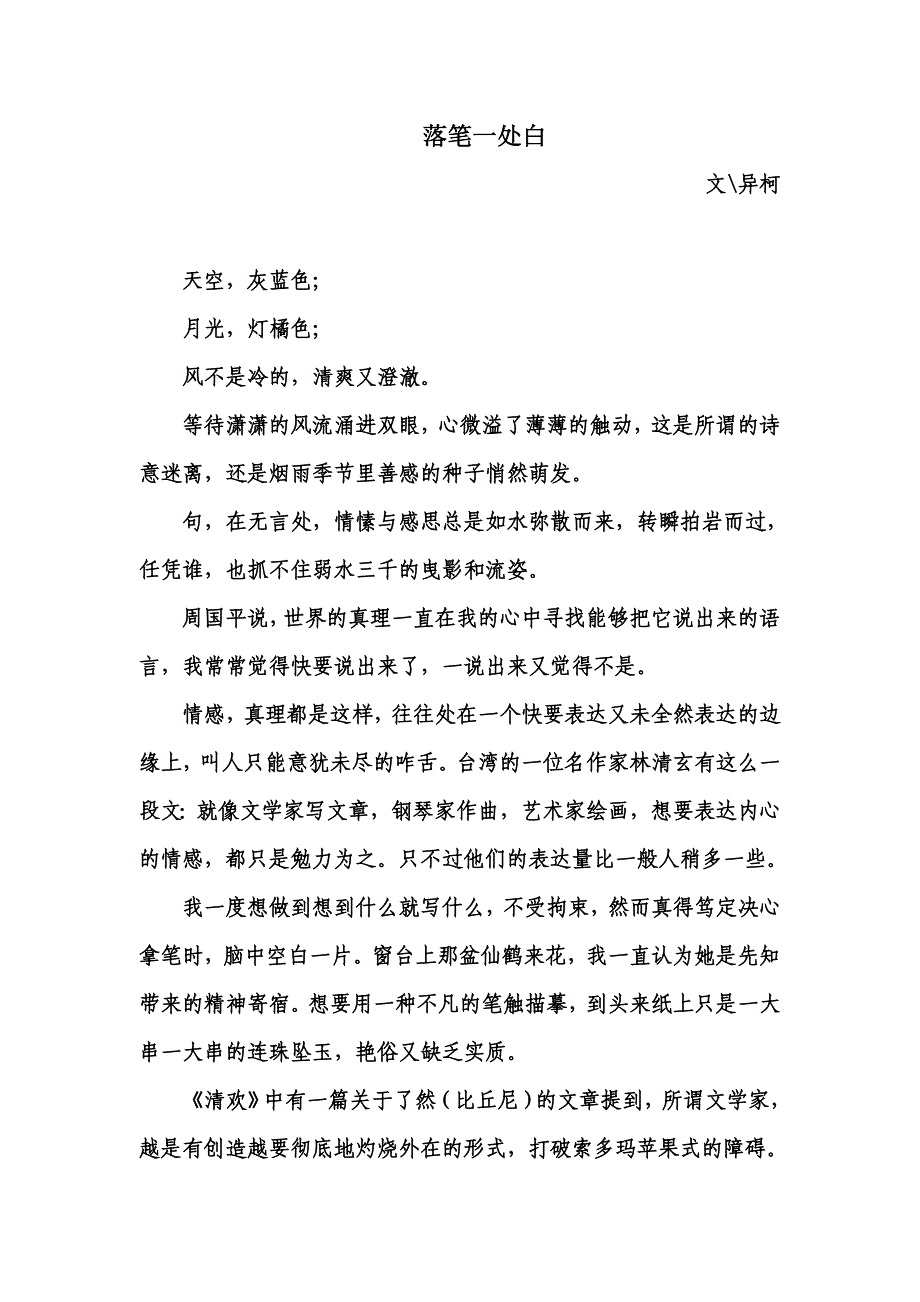 落笔一处白
文\异柯
天空，灰蓝色；
月光，灯橘色；
风不是冷的，清爽又澄澈。
等待潇潇的风流涌进双眼，心微溢了薄薄的触动，这是所谓的诗
意迷离，还是烟雨季节里善感的种子悄然萌发。
句，在无言处，情愫与感思总是如水弥散而来，转瞬拍岩而过，
任凭谁，也抓不住弱水三千的曳影和流姿。
周国平说，世界的真理一直在我的心中寻找能够把它说出来的语
言，我常常觉得快要说出来了，一说出来又觉得不是。
情感，真理都是这样，往往处在一个快要表达又未全然表达的边
缘上，叫人只能意犹未尽的咋舌。台湾的一位名作家林清玄有这么一
段文：就像文学家写文章，钢琴家作曲，艺术家绘画，想要表达内心
的情感，都只是勉力为之。只不过他们的表达量比一般人稍多一些。
我一度想做到想到什么就写什么，不受拘束，然而真得笃定决心
拿笔时，脑中空白一片。窗台上那盆仙鹤来花，我一直认为她是先知
带来的精神寄宿。想要用一种不凡的笔触描摹，到头来纸上只是一大
串一大串的连珠坠玉，艳俗又缺乏实质。
《清欢》中有一篇关于了然（比丘尼）的文章提到，所谓文学家，
越是有创造越要彻底地灼烧外在的形式，打破索多玛苹果式的障碍。